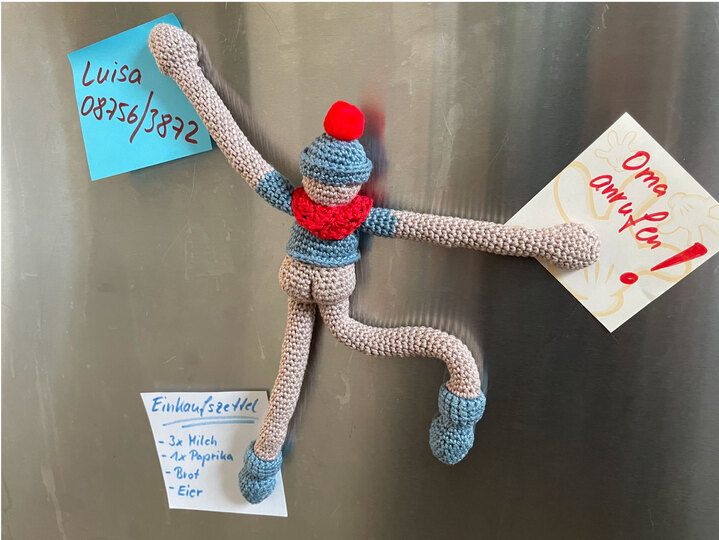 Luisa
08756/3872
Oma
anrufen
!
Einkaufszettel
- 3x Milch
- 1x Paprika
- Brot
- Eier